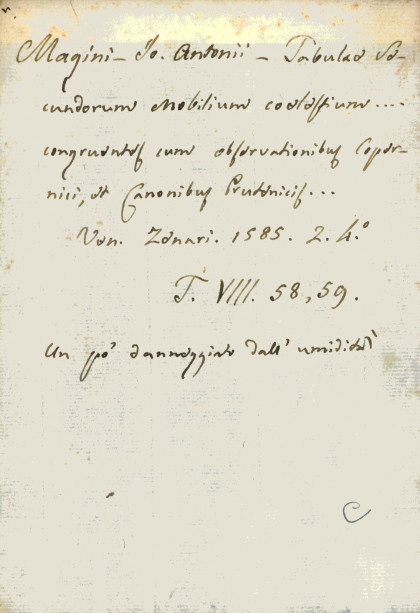 Magini - Jo. Antonii - Tabulae Se-
cundorum Mobilium coelestium....
congruentes cum observationibus Coper-
nici, et Canonibus Prutenicis...
Ven. Zenari. 1585. 2. 4.º
T. VIII. 58, 59.
Un pò danneggiato dall' umidità
C